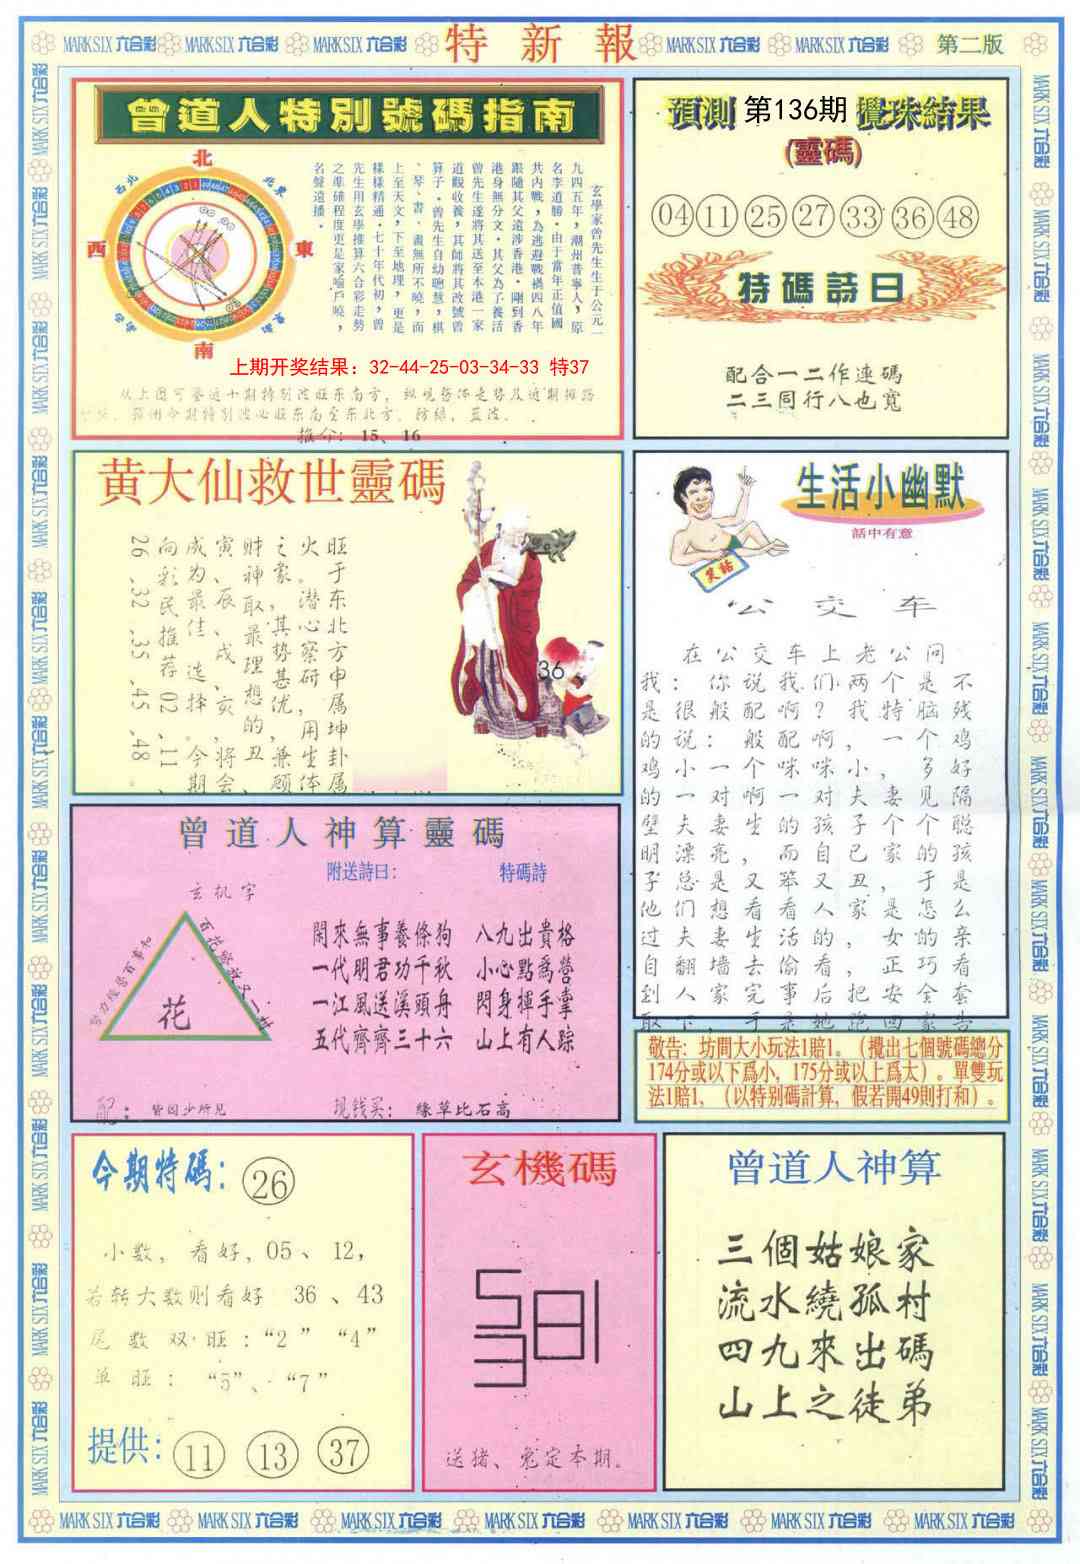 MARK SIX 六合彩 MARK SIX 六合彩 MARK SIX 六合彩 特新報 MARK SIX 六合彩 MARK SIX 六合彩 第二版
曾道人特別號碼指南
北
西北
東北
西
東
東南
南
玄學家曾先生生于公元一
九四五年，潮州普寧人，原
名李道勝·由于當年正值國
共內戰，為逃避戰禍四八年
跟隨其父遠涉香港·剛到香
港身無分文·其父為了養活
曾先生遂將其送至本港一家
道觀收養，其師將其改號曾
算子·曾先生自幼聰慧，棋
、琴、書、畫無所不曉，而
上至天文，下至地理，更是
樣樣精通·七十年代初，曾
先生用玄學推算六合彩走勢
之準確程度更是家喻戶曉，
名聲遠播·
上期开奖结果：32-44-25-03-34-33 特37
推介：15、16
預測 第136期 攪珠結果
(靈碼)
04 11 25 27 33 36 48
特碼詩曰
配合一二作連碼
二三同行八也寬
黄大仙救世靈碼
旺于东北方申属坤卦属
火。潜心察研，用生体
之家。其势甚优，兼顾
财神取最理想的丑
寅、辰、戌、亥将会
成为最佳选择。今期
向彩民推荐02、11、
26、32、35、45、48。
36
生活小幽默
話中有意
笑話
公交车
在公交车上老公问
我：你说我们两个是不
是很般配啊？我特脑残
的说：般配啊，一个鸡
鸡小一个咪咪小，多好
的一对啊一对夫妻见隔
壁夫妻生的孩子个个聪
明漂亮，而自已家的孩
子总是又笨又丑，于是
他们想看看人家是怎么
过夫妻生活的，女的亲
自翻墙去偷看，正巧看
到人家完事后把安全套
取下，于是她跑回家告
曾道人神算靈碼
附送詩曰：
特碼詩
玄机字
花
開來無事養條狗
一代明君功千秋
一江風送溪頭舟
五代齊齊三十六
八九出貴格
小心點爲營
閃身揮手掌
山上有人踪
配：
皆因少所見
现钱买：
緣草比石高
敬告：坊間大小玩法1賠1。（攪出七個號碼總分
174分或以下爲小，175分或以上爲大）。單雙玩
法1賠1，（以特別碼計算，假若開49則打和）。
今期特碼：26
小数，看好，05、12，
若转大数则看好 36、43
尾数双旺：“2” “4”
单旺：“5”、“7”
提供：11 13 37
玄機碼
送猪、兔定本期。
曾道人神算
三個姑娘家
流水繞孤村
四九來出碼
山上之徒弟
MARK SIX 六合彩 MARK SIX 六合彩 MARK SIX 六合彩 MARK SIX 六合彩 MARK SIX 六合彩 MARK SIX 六合彩 MARK SIX 六合彩